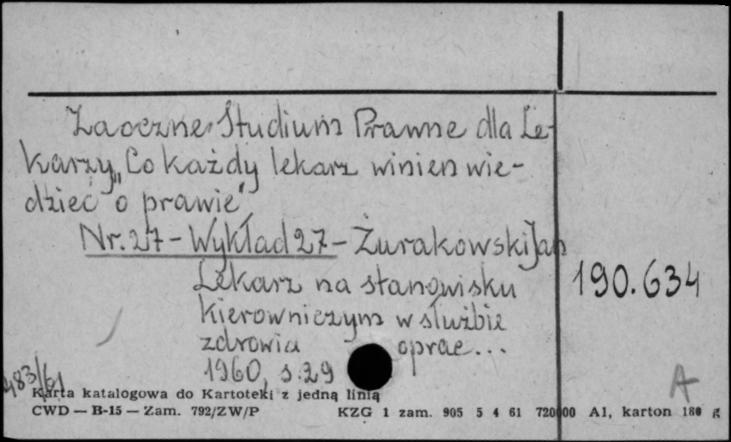 Zaoczne Studium Prawne dla Le-
karzy „Co każdy lekarz winien wie-
dzieć o prawie"
Nr. 27 - Wykład 27 - Żurakowski Jan
Lekarz na stanowisku
kierowniczym w służbie
zdrowia oprac...
1960, s. 29
190.634
483/61
A
Karta katalogowa do Kartoteki z jedną linią
CWD — B-15 — Zam. 792/ZW/P KZG 1 zam. 905 5 4 61 720 00 A1, karton 180 g